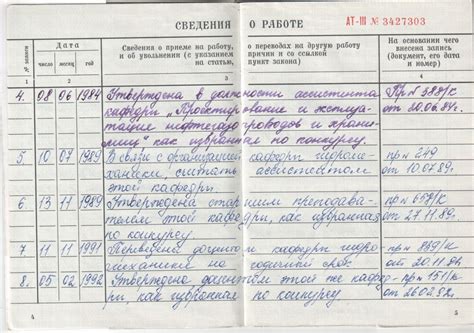 СВЕДЕНИЯ О РАБОТЕ
АТ-III № 3427303
№ записи
Дата
число месяц год
Сведения о приеме на работу, о переводах на другую работу
и об увольнении (с указанием причин и со ссылкой
на статью, пункт закона)
На основании чего
внесена запись
(документ, его дата
и номер)
1 2 3 4
4. 08 06 1984 Утверждена в должности ассистента
кафедры „Проектирование и эксплуа-
тация нефтегазопроводов и храни-
лищ" как избранная по конкурсу.
Пр №
от 20.06.84г.
5 10 07 1989 В связи с организацией кафедры гидроме-
ханики, считать ассистентом
этой кафедры.
пр н 249
от 10.07.89г.
6 13 11 1989 Утверждена старшим преподава-
телем этой кафедры, как избранная
по конкурсу
пр н
от 27.11.89г.
7 11 11 1991 Переведена доцентом кафедры гидро-
механики на годичный срок
пр н
от 20.11.
8. 05 02 1992 Утверждена доцентом этой же кафед-
ры, как избранная по конкурсу.
пр н 151/к
от 26.02.92г.
4
5